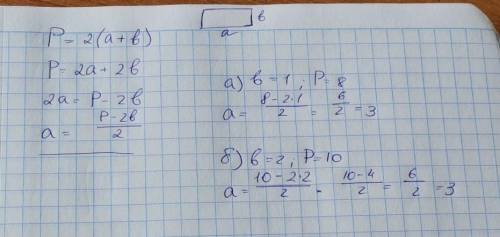 в
a
P = 2(a+в)
P = 2a + 2в
2a = P - 2в
a = \frac{P-2в}{2}
а) в=1 ; P=8
a = \frac{8-2·1}{2} = \frac{6}{2} = 3
б) в=2, P=10
a = \frac{10-2·2}{2} - \frac{10-4}{2} = \frac{6}{2} = 3